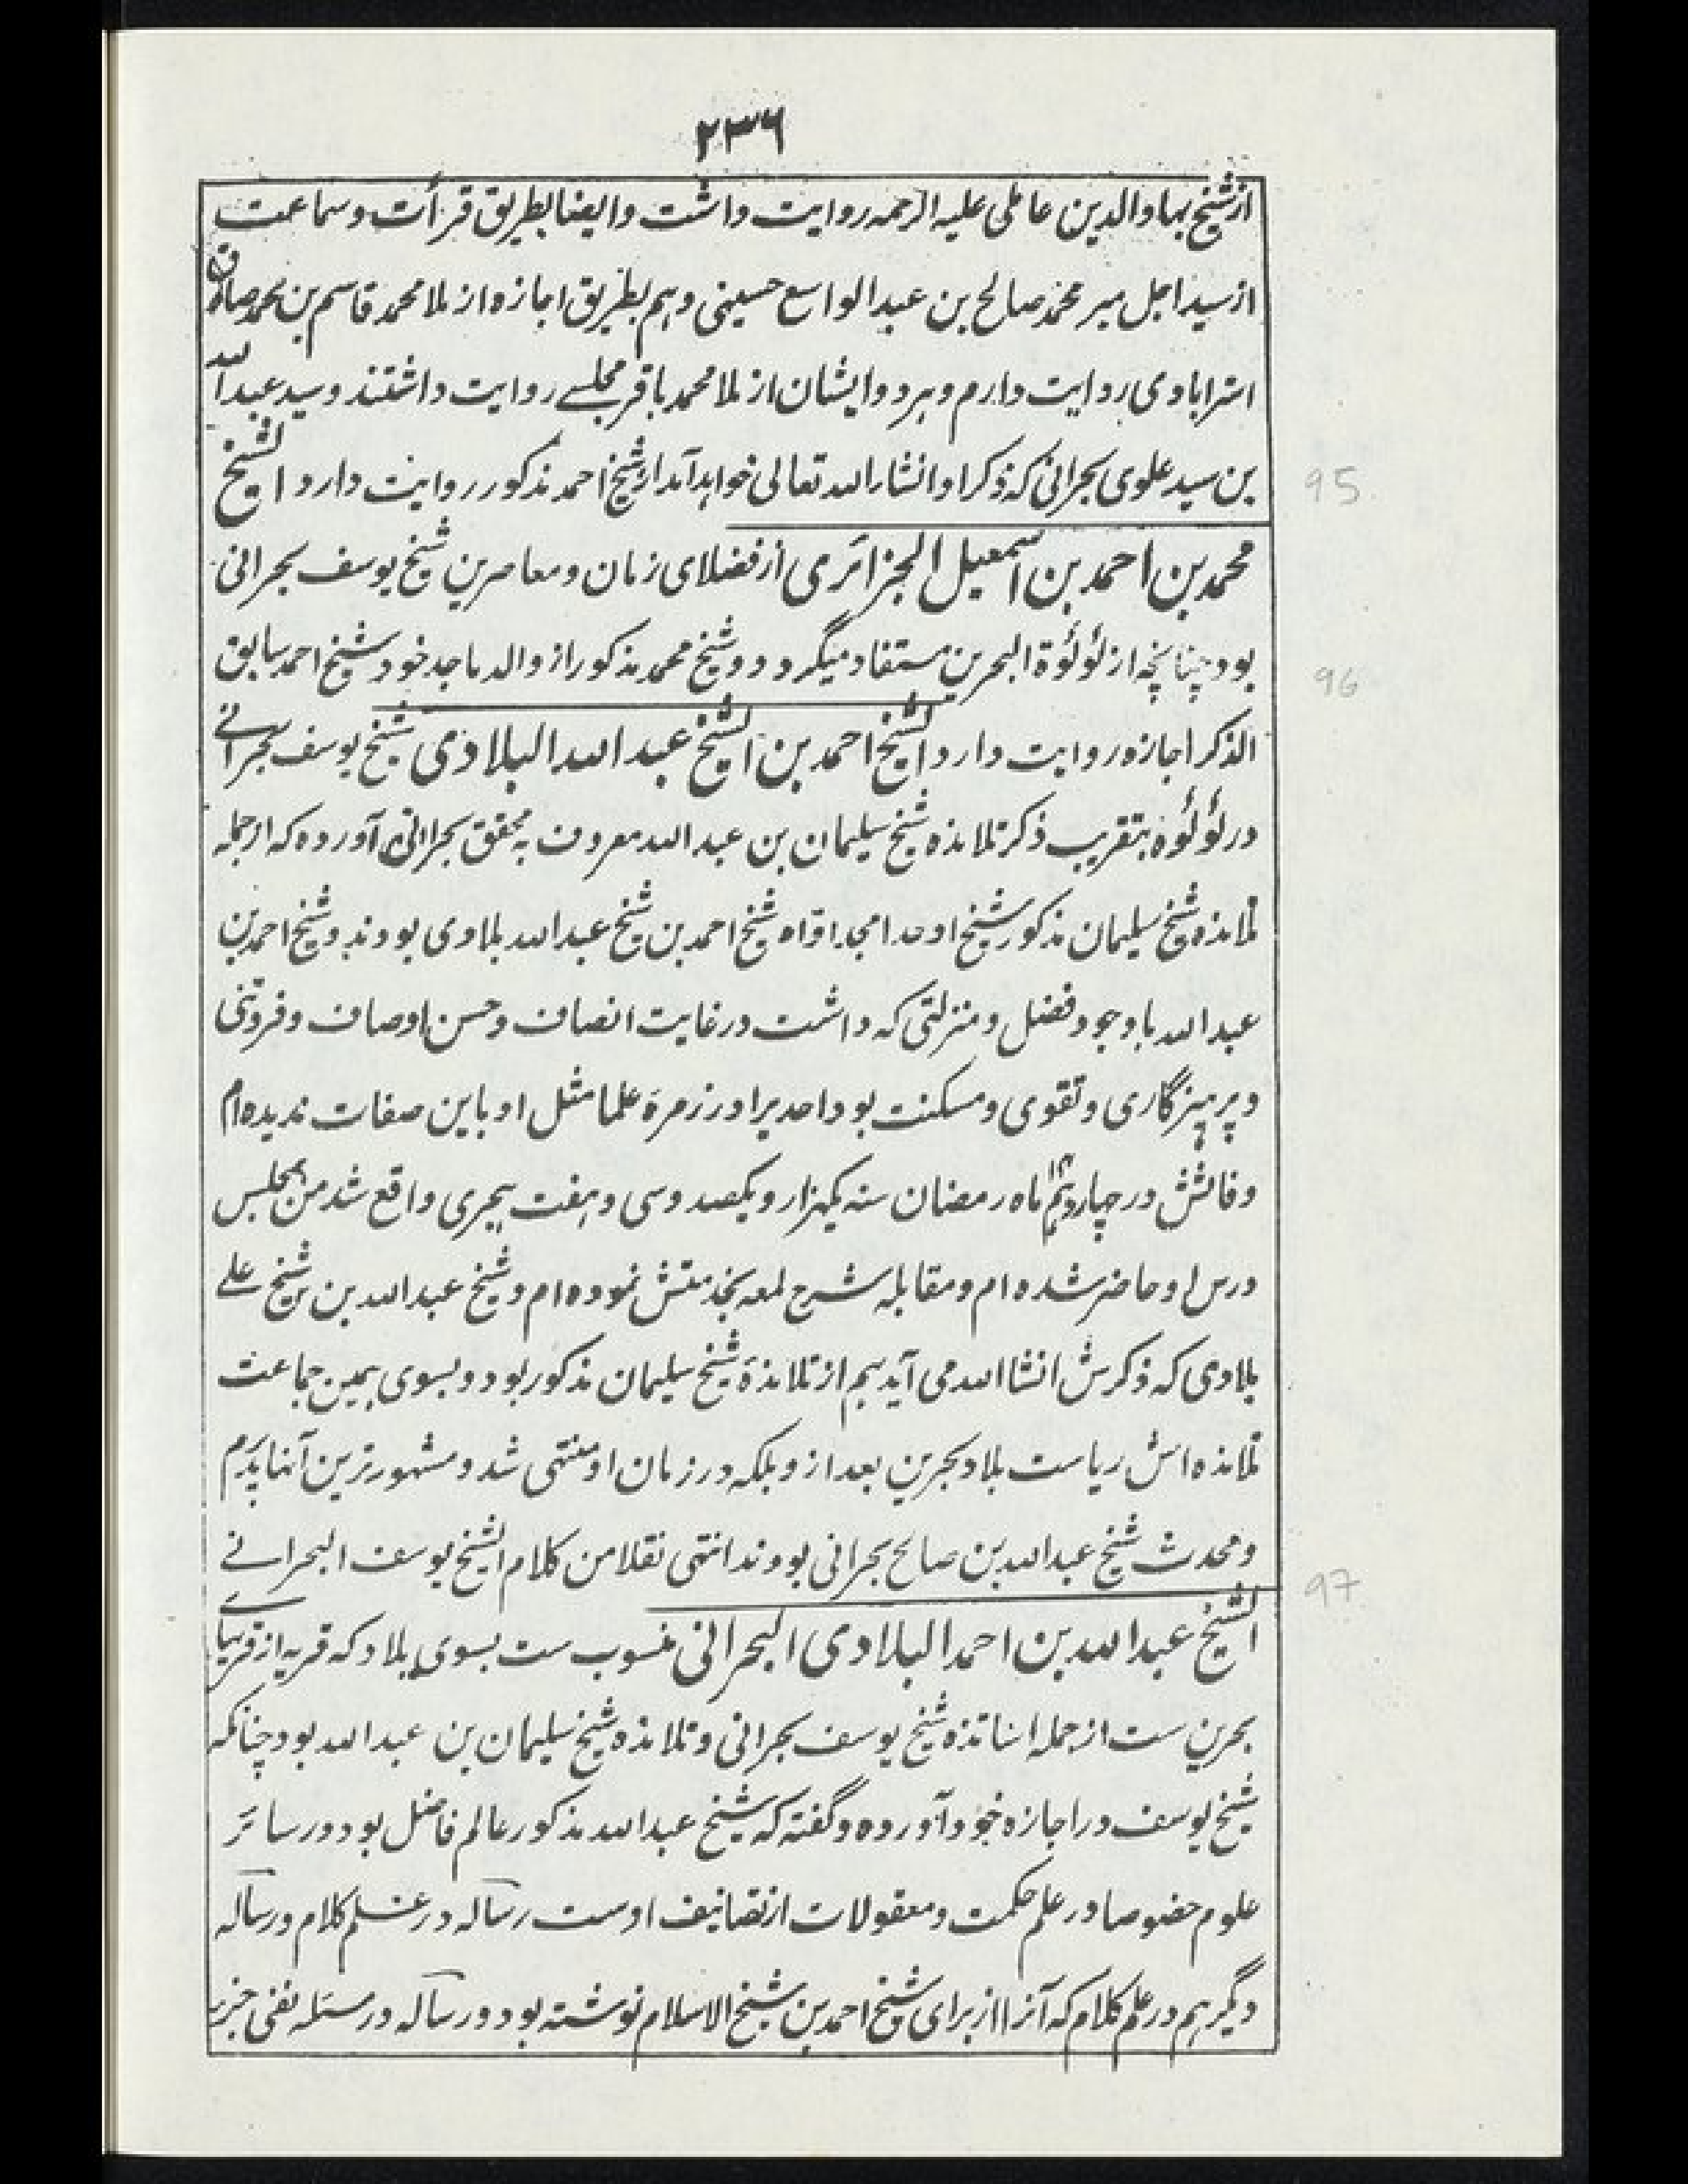 ٢٣٦
از شیخ بهاوالدین عاملی علیه الرحمه روایت داشت وایضا بطریق قرأت وسماعت
از سید اجل میر محمد صالح بن عبد الواسع حسینی وہم بطریق اجازہ از ملا محمد قاسم بن محمد صادق
استرابادی روایت دارم وہر دو ایشان از ملا محمد باقر مجلسے روایت داشتند وسید عبد الله
بن سید علوی بحرانی کہ ذکر او انشاء الله تعالی خواہد آمد از شیخ احمد مذکور روایت دارد الشیخ
95
محمد بن احمد بن اسمعیل الجزائری از فضلای زمان ومعاصرین شیخ یوسف بحرانی
بود چنانچہ از لؤلؤة البحرین مستفاد میگردد وشیخ محمد مذکور از والد ماجد خود شیخ احمد سابق
96
الذکر اجازہ روایت دارد الشیخ احمد بن الشیخ عبد الله البلادی شیخ یوسف بحرانے
در لؤلؤہ بتقریب ذکر تلامذہ شیخ سلیمان بن عبد الله معروف بہ محقق بحرانی آوردہ کہ از جملہ
تلامذہ شیخ سلیمان مذکور شیخ اوحد امجد اواہ شیخ احمد بن شیخ عبد الله بلادی بودند وشیخ احمد بن
عبد الله باوجود فضل ومنزلتی کہ داشت در غایت انصاف وحسن اوصاف وفروتنی
وپرہیزگاری وتقوی ومسکنت بود احدیرا در زمرۂ علما مثل او باین صفات ندیدہ ام
وفاتش در چہاردہم ١٤ ماہ رمضان سنہ یکہزار ویکصد وسی وہفت ہجری واقع شد من بمجلس
درس او حاضر شدہ ام ومقابلہ شرح لمعہ بخدمتش نمودہ ام وشیخ عبد الله بن شیخ علے
بلادی کہ ذکرش انشا الله می آید ہم از تلامذۂ شیخ سلیمان مذکور بود وبسوی ہمین جماعت
تلامذہ اش ریاست بلاد بحرین بعد از و بلکہ در زمان او منتہی شد ومشہورترین آنہا پدرم
ومحدث شیخ عبد الله بن صالح بحرانی بودند انتہی نقلا من کلام الشیخ یوسف البحرانے
97
الشیخ عبد الله بن احمد البلادی البحرانی منسوب ست بسوی بلاد کہ قریہ از قریہای
بحرین ست از جملہ اساتذہ شیخ یوسف بحرانی وتلامذہ شیخ سلیمان بن عبد الله بود چنانکہ
شیخ یوسف در اجازہ خود آوردہ وگفتہ کہ شیخ عبد الله مذکور عالم فاضل بود در سائر
علوم خصوصا در علم حکمت ومعقولات از تصانیف اوست رسالہ در علم کلام ورسالہ
دیگر ہم در علم کلام کہ آنرا از برای شیخ احمد بن شیخ الاسلام نوشتہ بود ورسالہ در مسئلہ نفی جزء